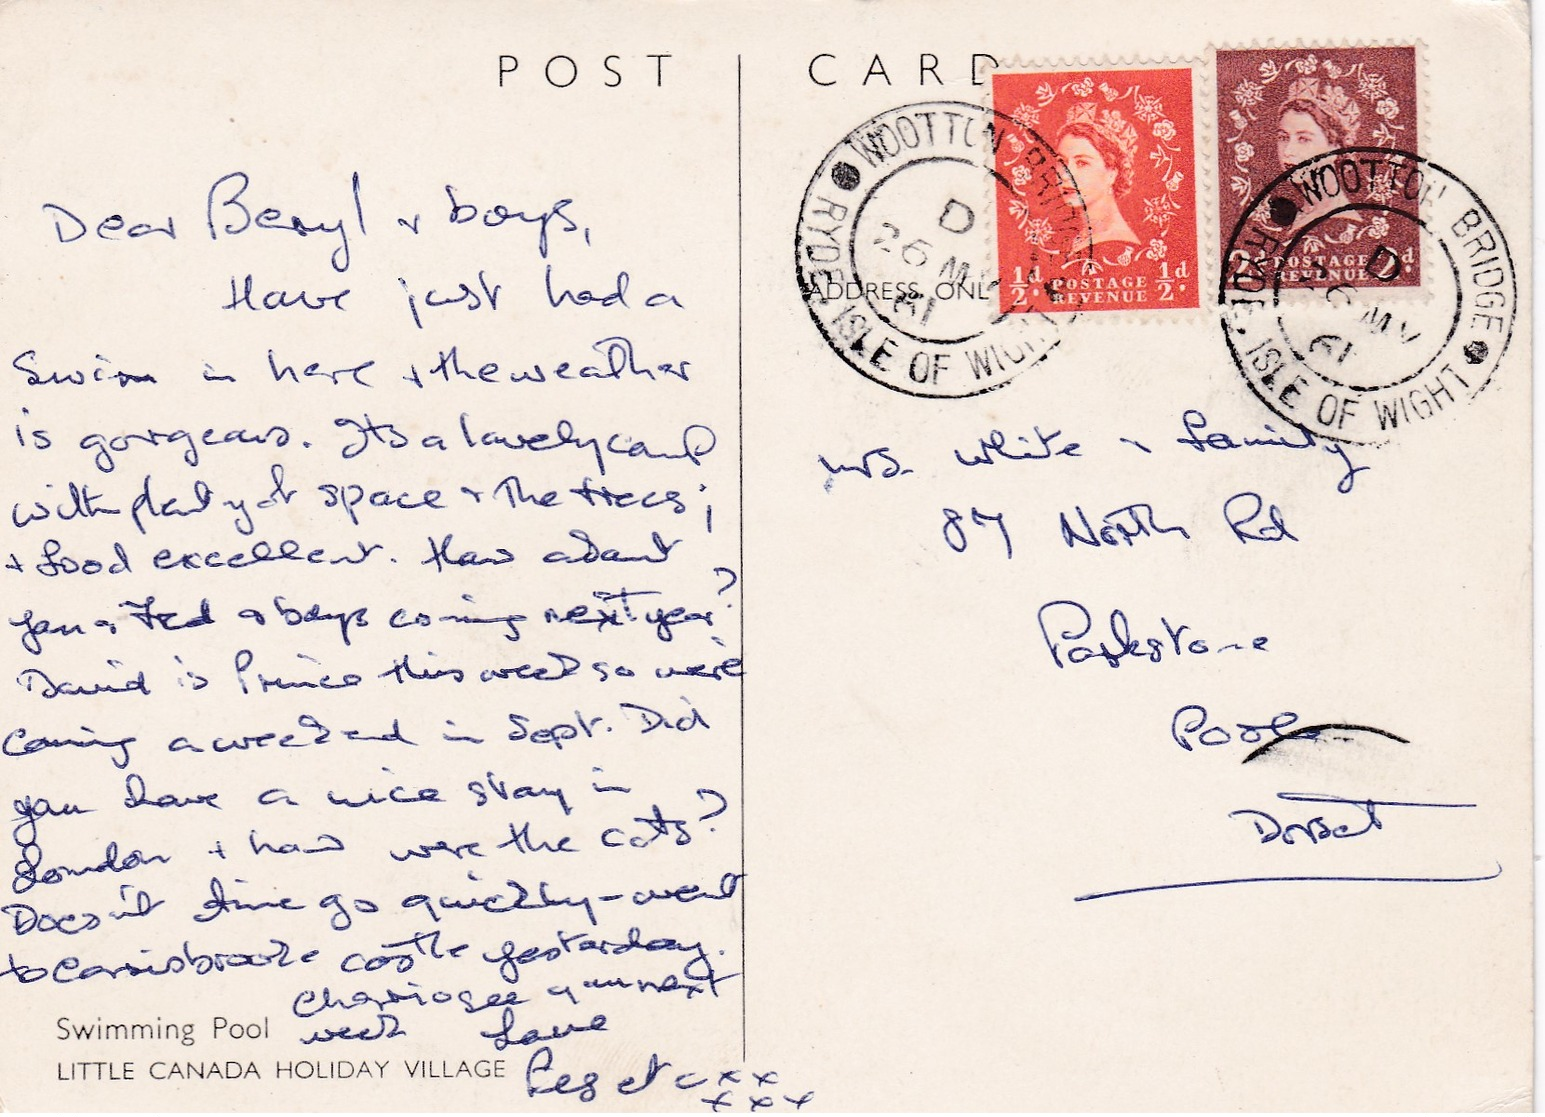 POST CARD
Dear Beryl & boys,
Have just had a
Swim in here & the weather
is gorgeous. Its a lovely camp
with plenty of space & the trees;
& food excellent. How about
you & Fred & boys coming next year?
David is Prince this week so were
coming a weekend in Sept. Did
you have a nice stay in
London & how were the cats?
Doesn't time go quickly - went
to Carisbrooke castle yesterday.
Cheerio see you next
week Love
Reg etc xx
xxx
Swimming Pool
LITTLE CANADA HOLIDAY VILLAGE
WOOTTON BRIDGE
D
26 MY
61
RYDE, ISLE OF WIGHT
ADDRESS ONL
½d. POSTAGE ½d.
REVENUE
WOOTTON BRIDGE
D
26 MY
61
RYDE, ISLE OF WIGHT
2d. POSTAGE 2d.
REVENUE
Mrs. White & family
87 North Rd
Parkstone
Poole
Dorset